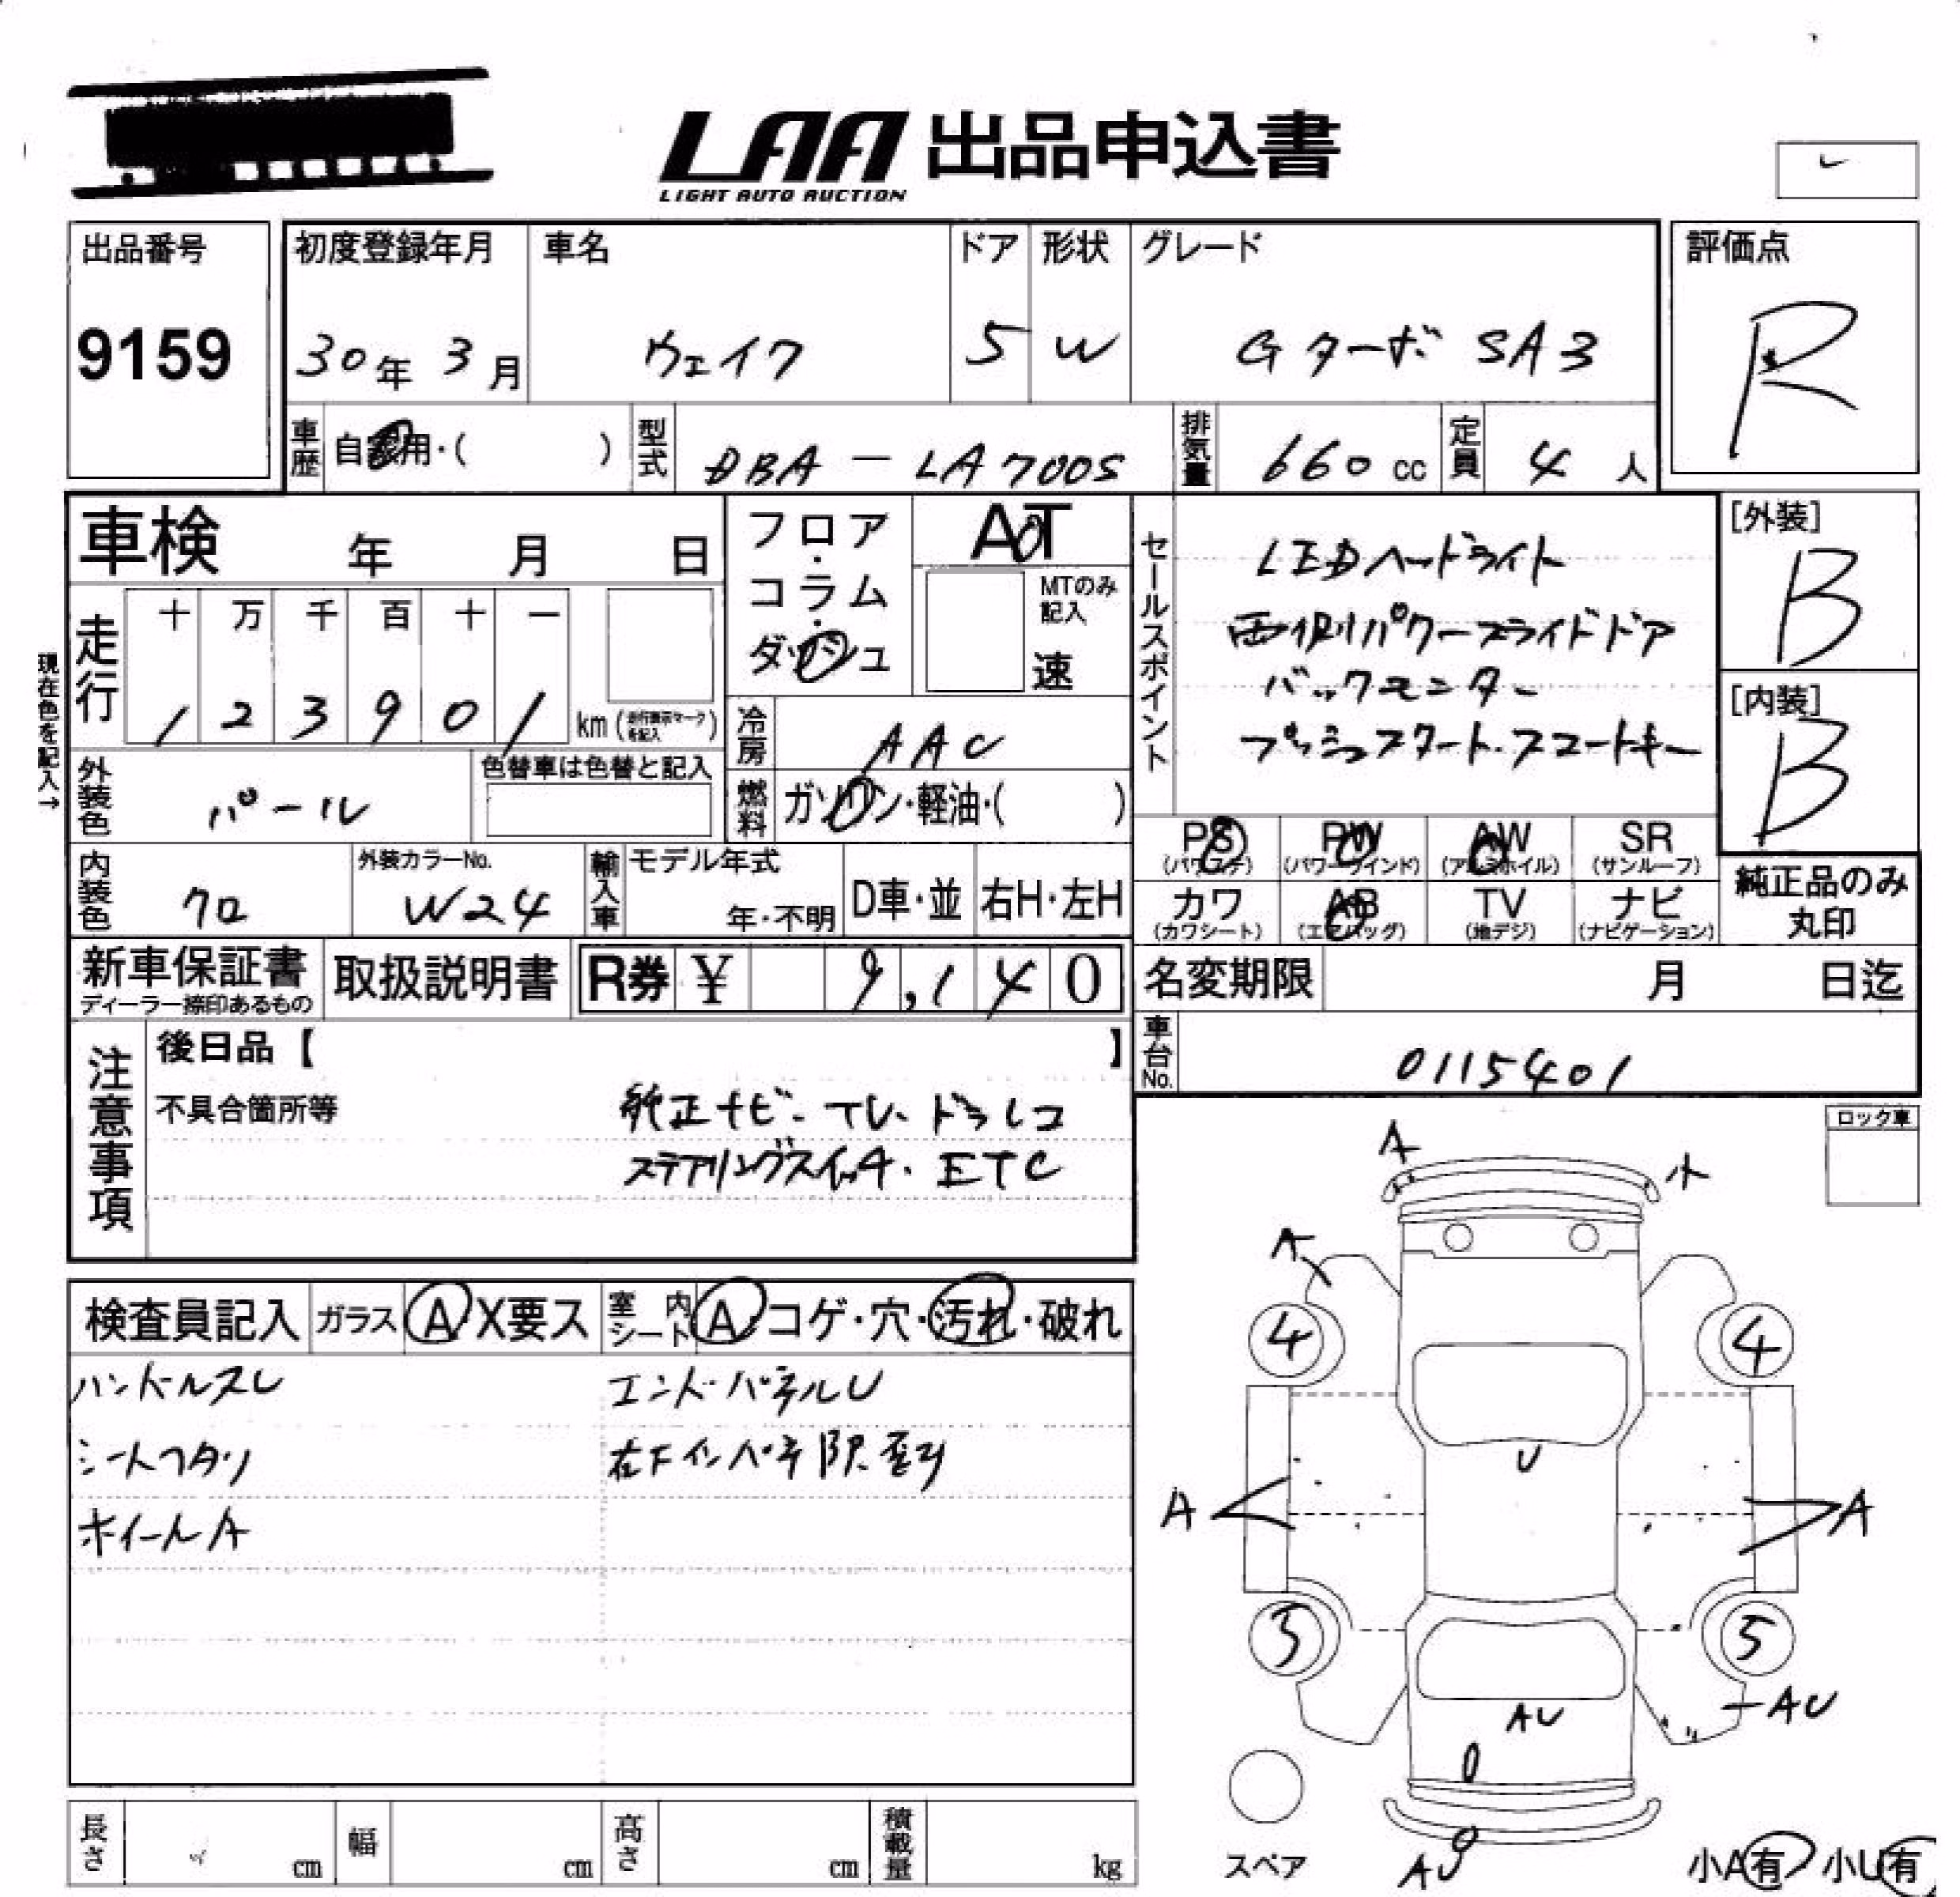 LAA 出品申込書
LIGHT AUTO AUCTION
出品番号
9159
初度登録年月
30年 3月
車名
ウェイク
ドア
5
形状
W
グレード
Gターボ SA3
評価点
R
車歴
自家用・( )
型式
DBA-LA700S
排気量
660 cc
定員
4 人
車検 年 月 日
フロア・コラム・ダッシュ
AT
MTのみ記入
速
セールスポイント
LEDヘッドライト
両側パワースライドドア
バックモニター
プッシュスタート・スマートキー
[外装]
B
[内装]
B
現在色を記入→
走行
十 万 千 百 十 一
1 2 3 9 0 1
km (走行表示マークを記入)
冷房
AAC
外装色
パール
色替車は色替と記入
燃料
ガソリン・軽油・( )
PS (パワステ)
PW (パワーウインド)
AW (アルミホイル)
SR (サンルーフ)
カワ (カワシート)
AB (エアバッグ)
TV (地デジ)
ナビ (ナビゲーション)
純正品のみ丸印
内装色
クロ
外装カラーNo.
W24
輸入車
モデル年式
年・不明
D車・並
右H・左H
新車保証書
ディーラー捺印あるもの
取扱説明書
R券 ¥ 9,140
名変期限 月 日迄
車台No.
0115401
注意事項
後日品【 】
不具合箇所等
純正ナビ・TV・ドラレコ
ステアリングスイッチ・ETC
ロック車
検査員記入
ガラス A X要ス
室内シート A コゲ・穴・汚れ・破れ
ハンドルスレ
エンドパネルU
シートヘタリ
ホイールA
A
A
4
4
U
A
A
5
5
AU
AU
AU
スペア
小A有 小U有
長さ cm
幅 cm
高さ cm
積載量 kg